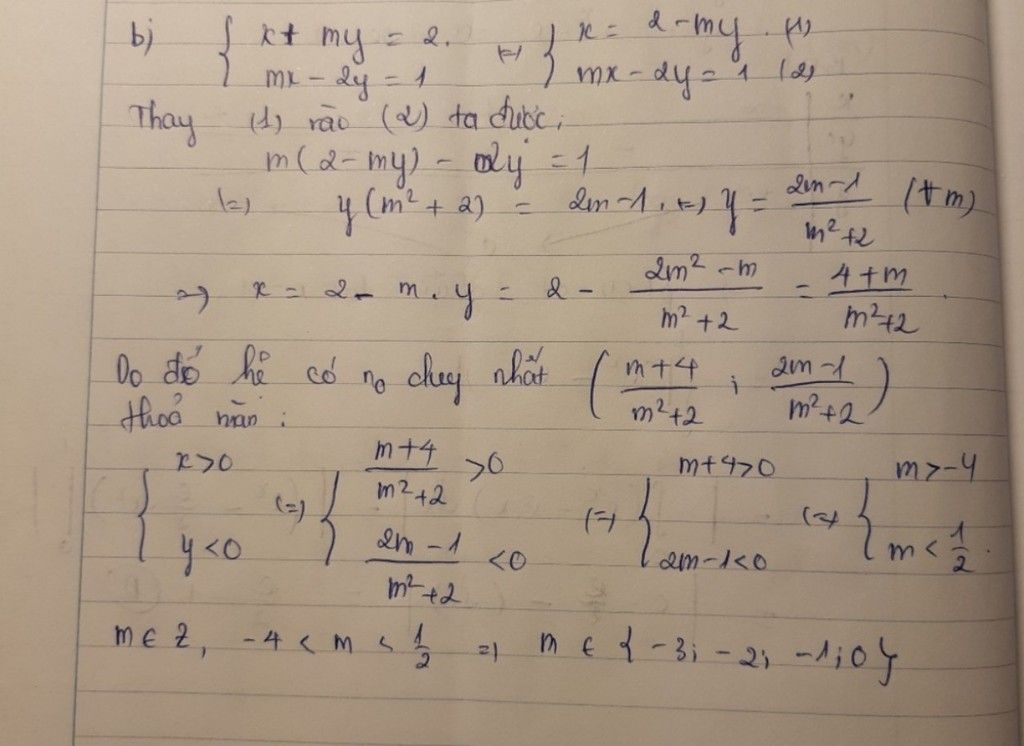 b) { x + my = 2. (=) { x = 2 - my. (1)
mx - 2y = 1 mx - 2y = 1 (2)
Thay (1) vào (2) ta được:
m(2 - my) - 2y = 1
(=) y(m² + 2) = 2m - 1. (=) y = (2m - 1)/(m² + 2) (∀m)
=) x = 2 - m.y = 2 - (2m² - m)/(m² + 2) = (4 + m)/(m² + 2).
Do đó hệ có no duy nhất ((m + 4)/(m² + 2) ; (2m - 1)/(m² + 2))
thoả mãn:
{ x > 0 (=) { (m + 4)/(m² + 2) > 0 (=) { m + 4 > 0 (=) { m > -4
y < 0 (2m - 1)/(m² + 2) < 0 2m - 1 < 0 m < 1/2.
m ∈ Z, -4 < m < 1/2 =) m ∈ { -3; -2; -1; 0 }